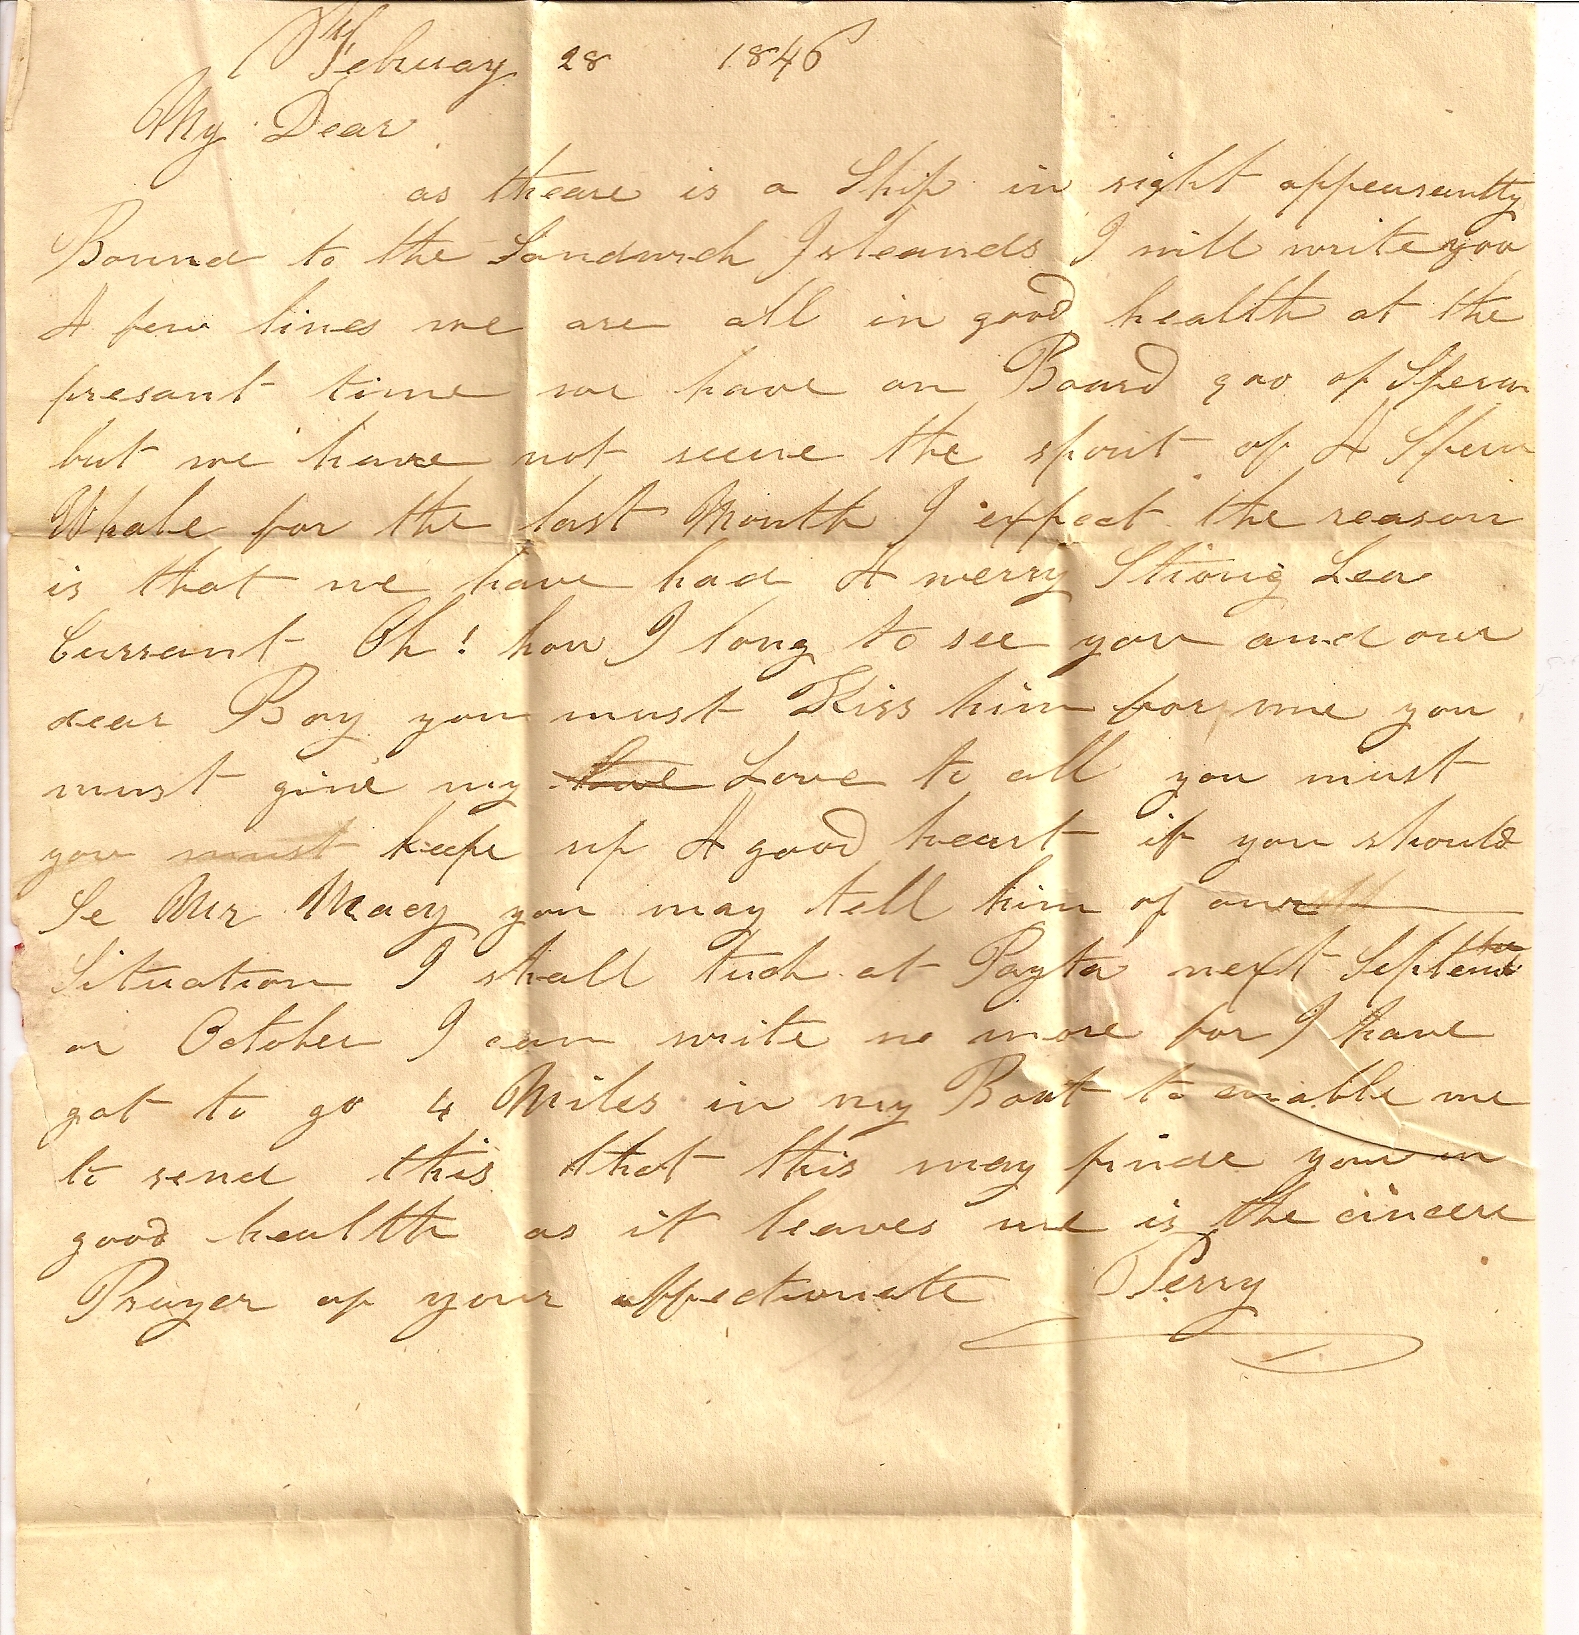 February 28 1846
My Dear
as theare is a Ship in sight appearantly
Bound to the Sandwich Isleands I will write you
A few lines we are all in good health at the
presant time we have on Board 900 of Sperm
but we have not seene the spout of A Sperm
Whale for the last Month I expect the reason
is that we have had A werry Strong Sea
Currant Oh! how I long to see you and our
dear Boy you must Kiss him for me you
must give my love Love to all you must
you must keepe up A good heart if you should
Se Mr Macy you may tell him of our
Situation I shall tuch at Payta next
or October I can write no more for I have
got to go 4 Miles in my Boat to enable me
to send this that this may finde you in
good health as it leaves me is the cincere
Prayer of your affectionate Perry